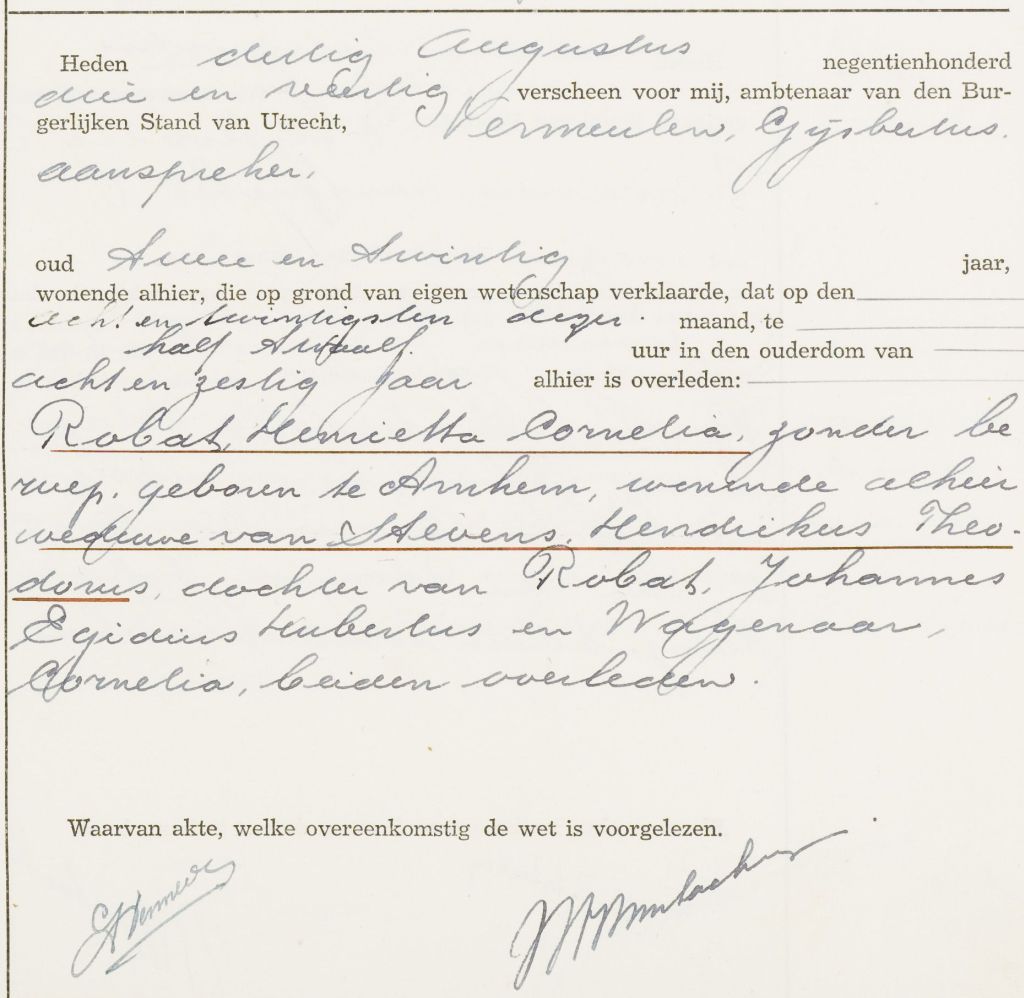 Heden dertig Augustus negentienhonderd
drie en veertig verscheen voor mij, ambtenaar van den Bur-
gerlijken Stand van Utrecht, Vermeulen, Gijsbertus.
aanspreker,
oud twee en twintig jaar,
wonende alhier, die op grond van eigen wetenschap verklaarde, dat op den
acht en twintigsten dezer maand, te
half twaalf uur in den ouderdom van
acht en zestig jaar alhier is overleden:
Robat, Henrietta Cornelia, zonder be
roep, geboren te Arnhem, wonende alhier
weduwe van Stevens, Hendrikus Theo-
dorus, dochter van Robat, Johannes
Egidius Hubertus en Wagenaar,
Cornelia, beiden overleden.
Waarvan akte, welke overeenkomstig de wet is voorgelezen.